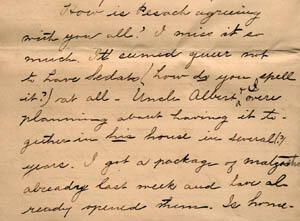 How is Pesach agreeing
with you all? I miss it so
much. It seemed queer not
to have sedats (how do you spell
it?) at all - Uncle Albert & I were
planning about having it to-
gether in his house in several?
years. I got a package of matzoths
already last week and have al-
ready opened them. Is home-